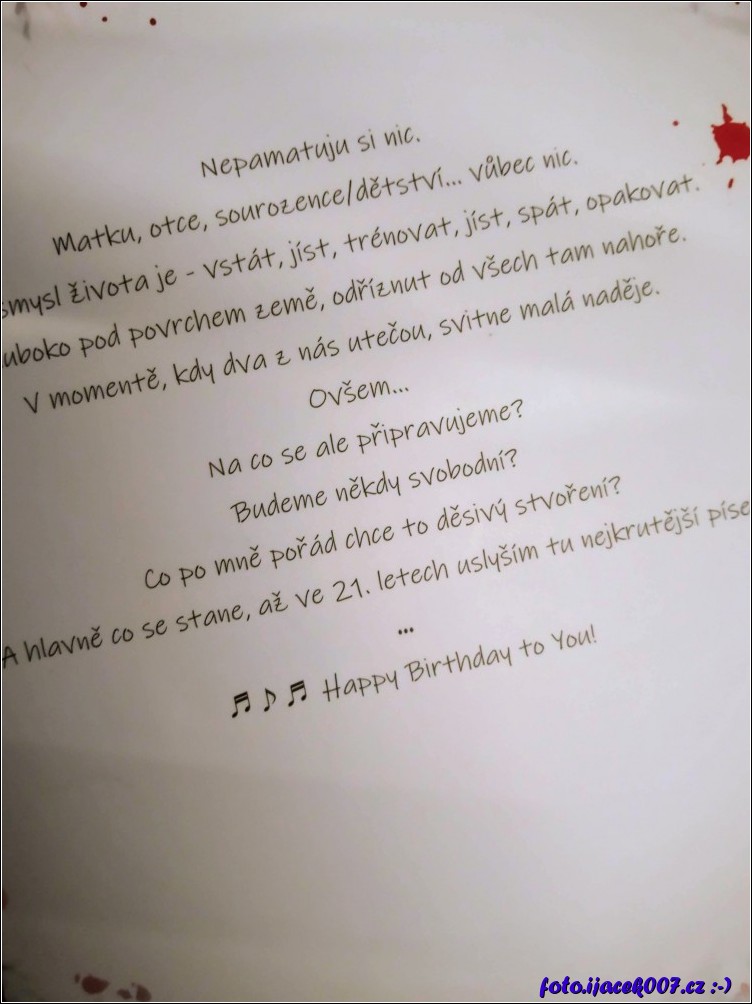 Nepamatuju si nic.
Matku, otce, sourozence/dětství... vůbec nic.
smysl života je - vstát, jíst, trénovat, jíst, spát, opakovat.
uboko pod povrchem země, odříznut od všech tam nahoře.
V momentě, kdy dva z nás utečou, svitne malá naděje.
Ovšem...
Na co se ale připravujeme?
Budeme někdy svobodní?
Co po mně pořád chce to děsivý stvoření?
A hlavně co se stane, až ve 21. letech uslyším tu nejkrutější píse
...
♬ ♪ ♬ Happy Birthday to You!
foto.ijacek007.cz :-)